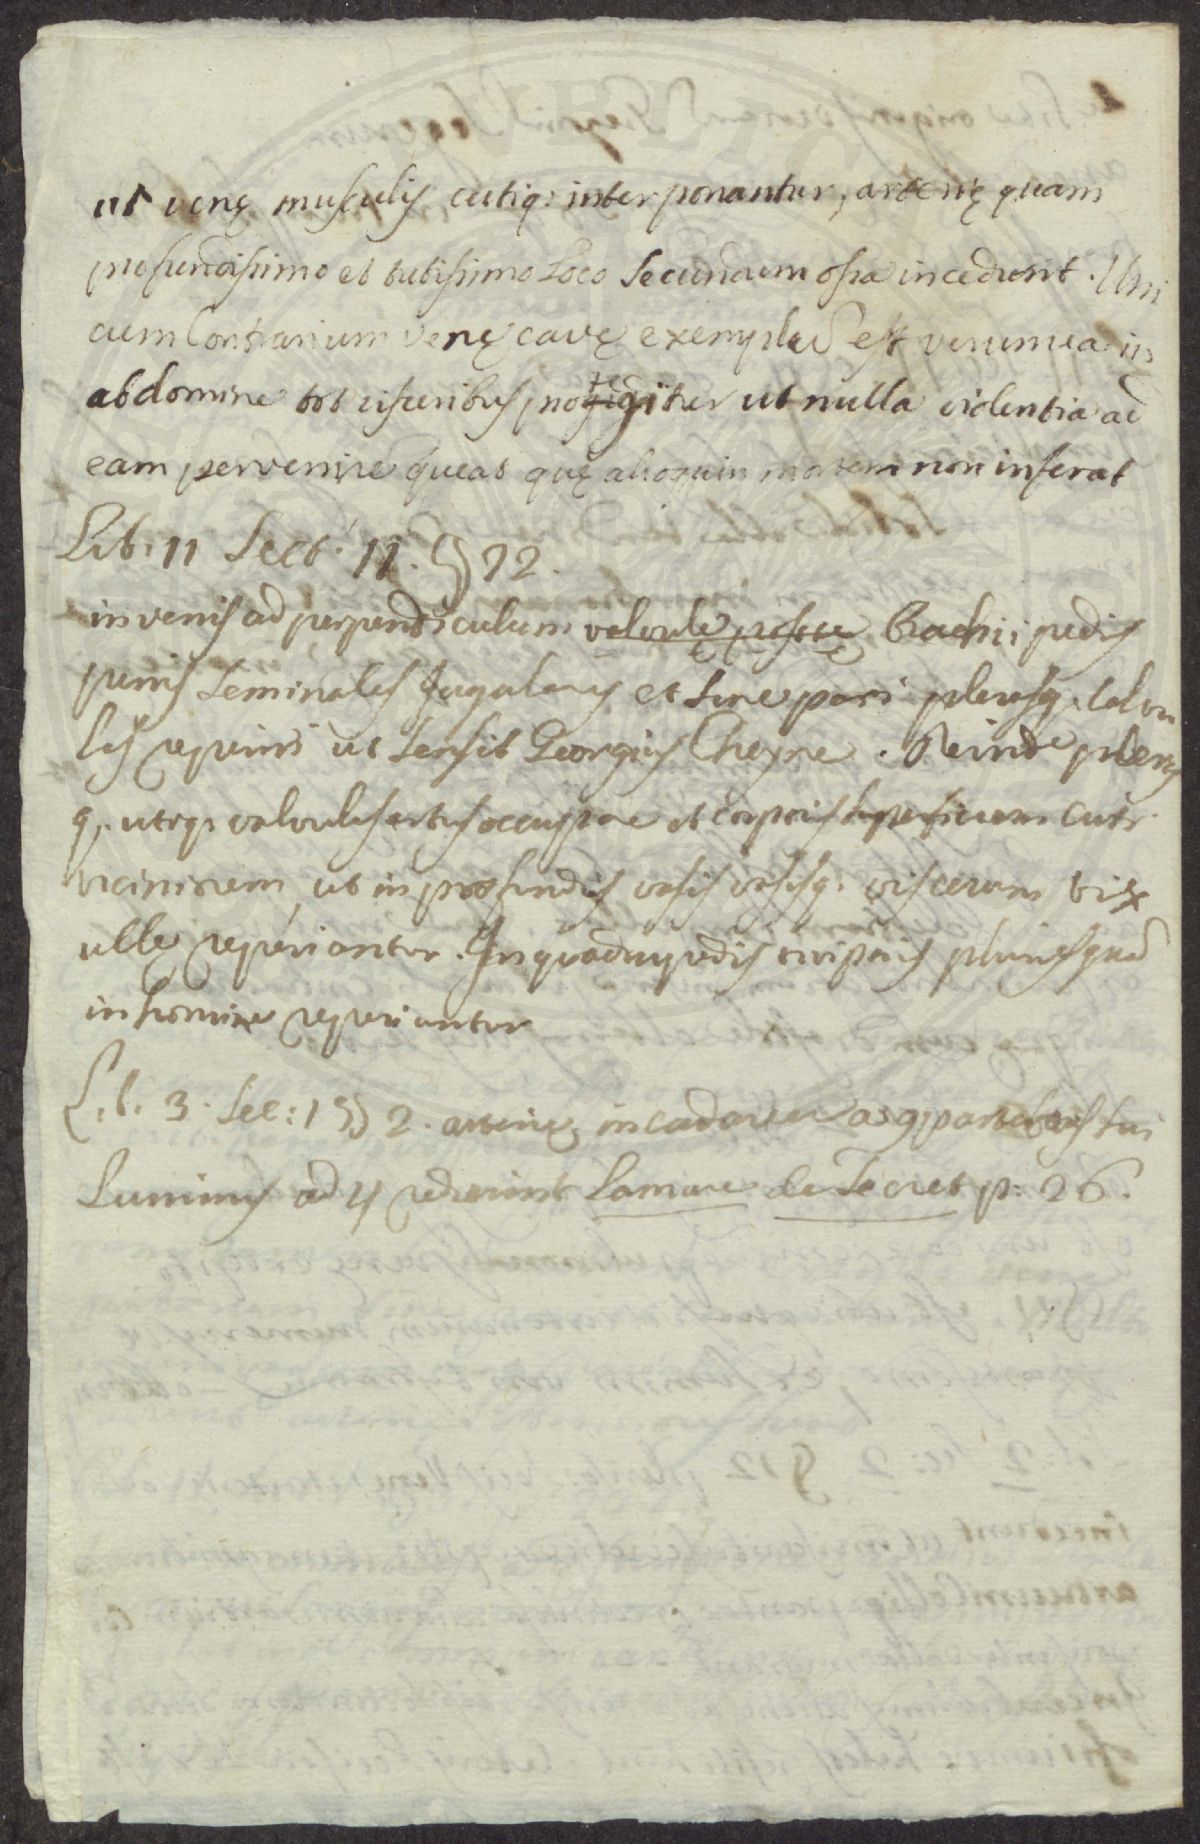 ut venę musculis cutiq: interponantur, arterię quam
profundissimo et tutissimo Loco Secundum ossa incedunt. Uni
cum Contrarium venę cavę exemplum est verum ea in
abdomine tot visceribus protegitur ut nulla violentia ad
eam pervenire queat quę alioquin mortem non inferat
Lib: 11 Sect: 11. § 12.
in venis ad perpendiculum valvulę Brachii pedis
penis Seminales Jugulares et Sine pari plerisq. valvu
lis reperiri ut Sensit Georgius Cheyne. Deinde plerum
q. utrq. valvulis artus occupare et corporis superficiem cuti
viciniorem, ut in profundis vasis vasisq. viscerum vix
ullę reperiantur. In quadrupedis plures quam
in homine reperiuntur
Lib. 3. Sec: 1 § 2. arterię in cadavere partem sui
Luminis ad redeunt Lamure de Secret p: 26.